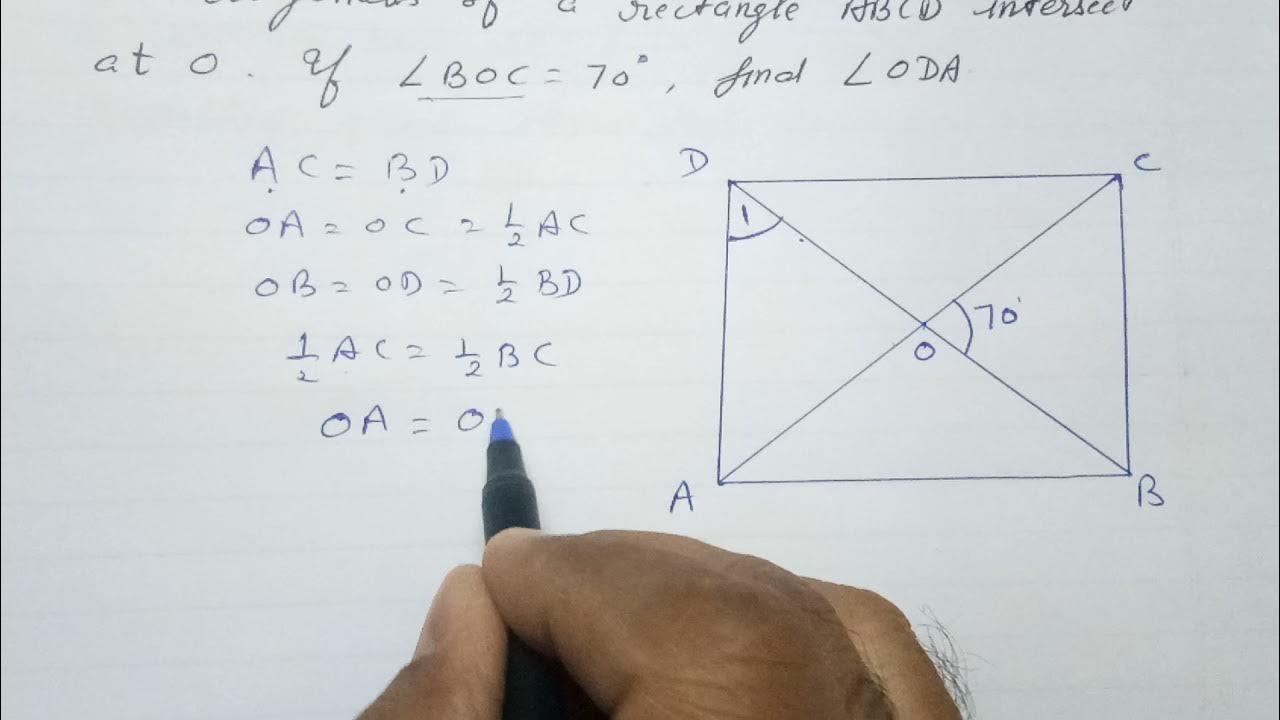 of a rectangle ABCD intersect
at O. If ∠BOC = 70°, find ∠ODA
AC = BD
OA = OC = 1/2 AC
OB = OD = 1/2 BD
1/2 AC = 1/2 BC
OA = O
D
C
1
70°
O
A
B